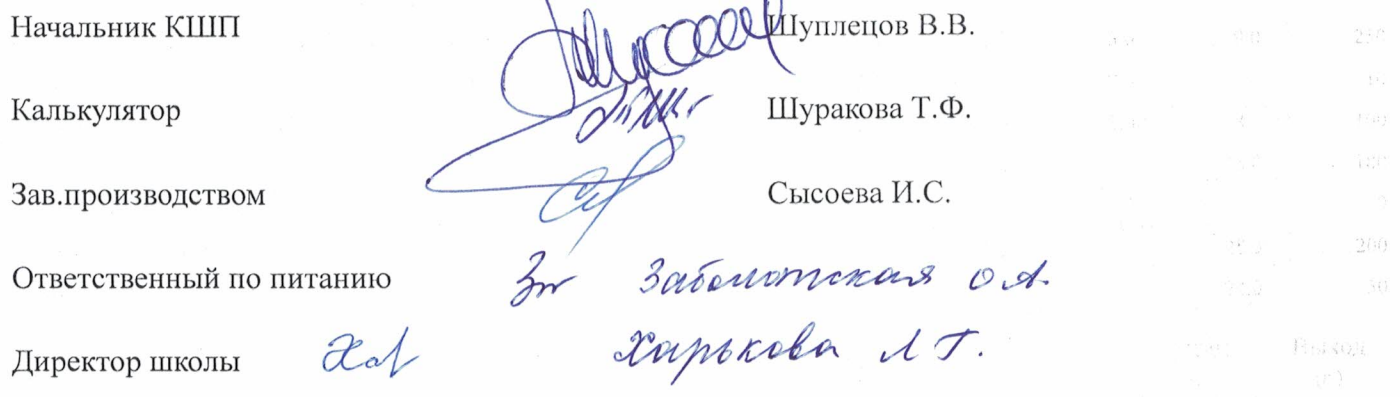 Начальник КШП Шуплецов В.В.
Калькулятор Шуракова Т.Ф.
Зав.производством Сысоева И.С.
Ответственный по питанию Заболотская О.А.
Директор школы Харькова Л Г.